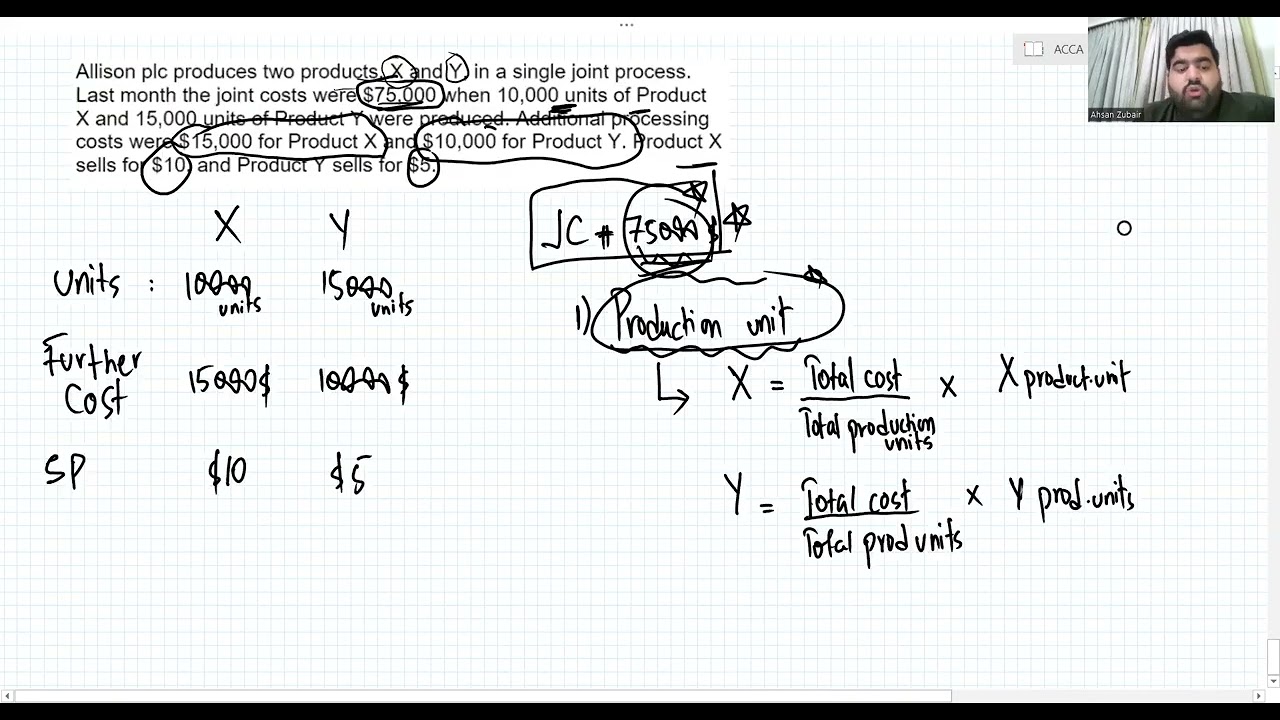 ...
ACCA
Ahsan Zubair
Allison plc produces two products, X and Y, in a single joint process.
Last month the joint costs were $75,000 when 10,000 units of Product
X and 15,000 units of Product Y were produced. Additional processing
costs were $15,000 for Product X and $10,000 for Product Y. Product X
sells for $10, and Product Y sells for $5.
JC 75000 $
X Y
units : 10000 units 15000 units
1) Production unit
Further cost 15000$ 10000$
X = Total cost / Total production units x X product.unit
SP $10 $5
Y = Total cost / Total prod units x Y prod.units